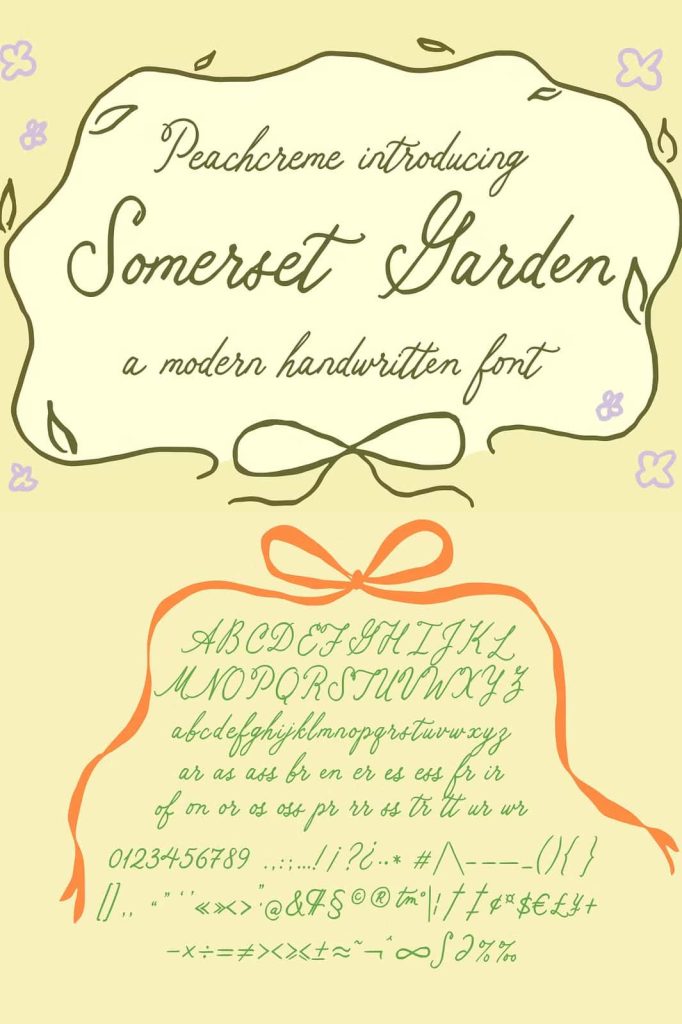 Peachcreme introducing
Somerset Garden
a modern handwritten font
ABCDEFGHIJKL
MNOPQRSTUVWXYZ
abcdefghijklmnopqrstuvwxyz
ar as ass br en er es ess fr ir
of on or os oss pr rr ss tr tt ur wr
0123456789 .,:;…!¡?¿·•* #/\-–—_(){}
[]‚„ “”‘’ «»‹› "'@&¶§©®™°|¦†‡¢¤$€£¥+
−×÷=≠><≥≤±≈~¬^∞∫∂%‰